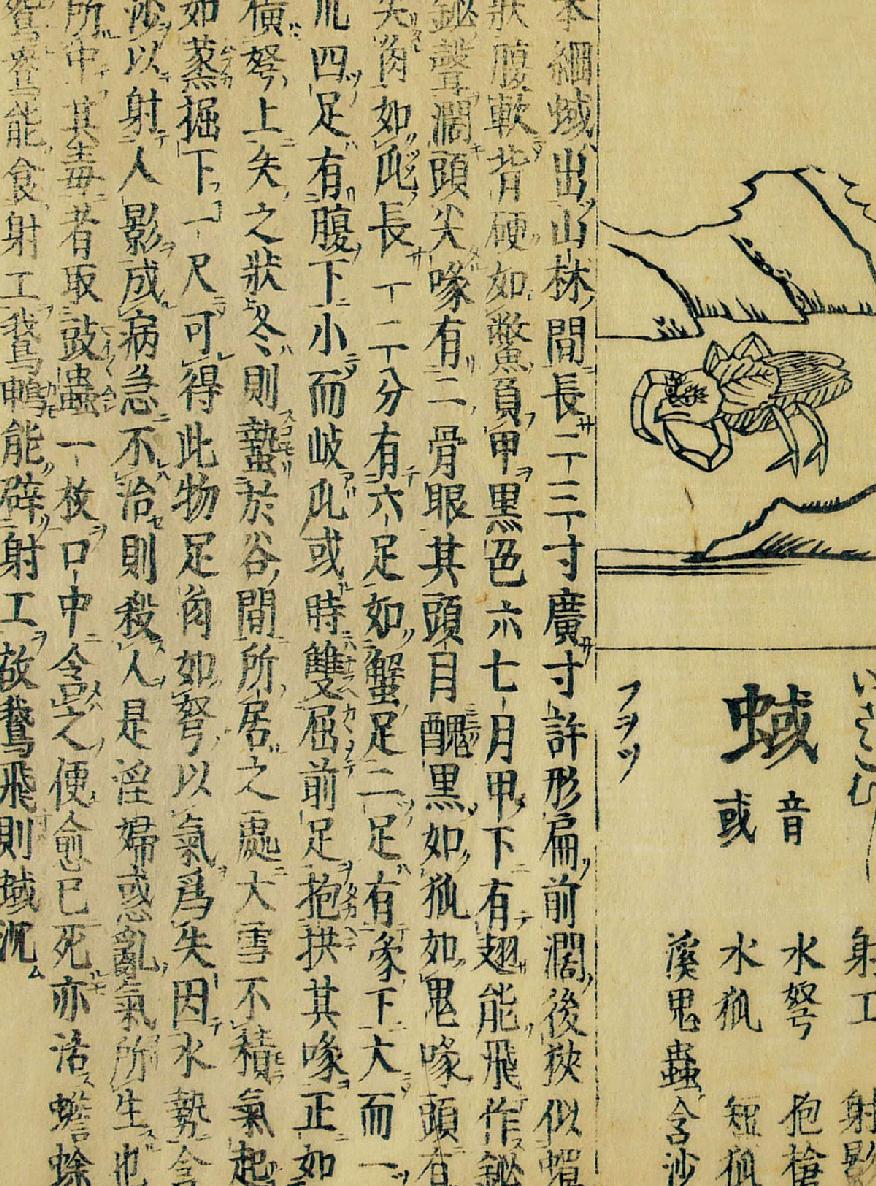 いさこむし
蜮
音
或
フヲツ
射工　射影
水弩　抱槍
水狐　短狐
溪鬼蟲　含沙
本綱蜮出山林間長二三寸廣寸許形扁前濶後狹似蟬
狀腹軟背硬如鱉負甲黑色六七月甲下有翅能飛作鉍
鉍聲濶頭尖喙有二骨眼其頭目醜黑如狐如鬼喙頭有
尖角如爪長一二分有六足如蟹足二足有喙下大而一
爪四足有腹下小而岐爪或時雙屈前足抱拱其喙正如
橫弩上矢之狀冬則蟄於谷間所居之處大雪不積氣起
如蒸掘下一尺可得此物足角如弩以氣爲矢因水勢含
沙以射人影成病急不治則殺人是淫婦惑亂氣所生也
所中其毒者取鼓蟲一枚口中含之便愈已死亦活蟾蜍
鴛鴦能食射工鵞鴨能辟射工故鵞飛則蜮沉